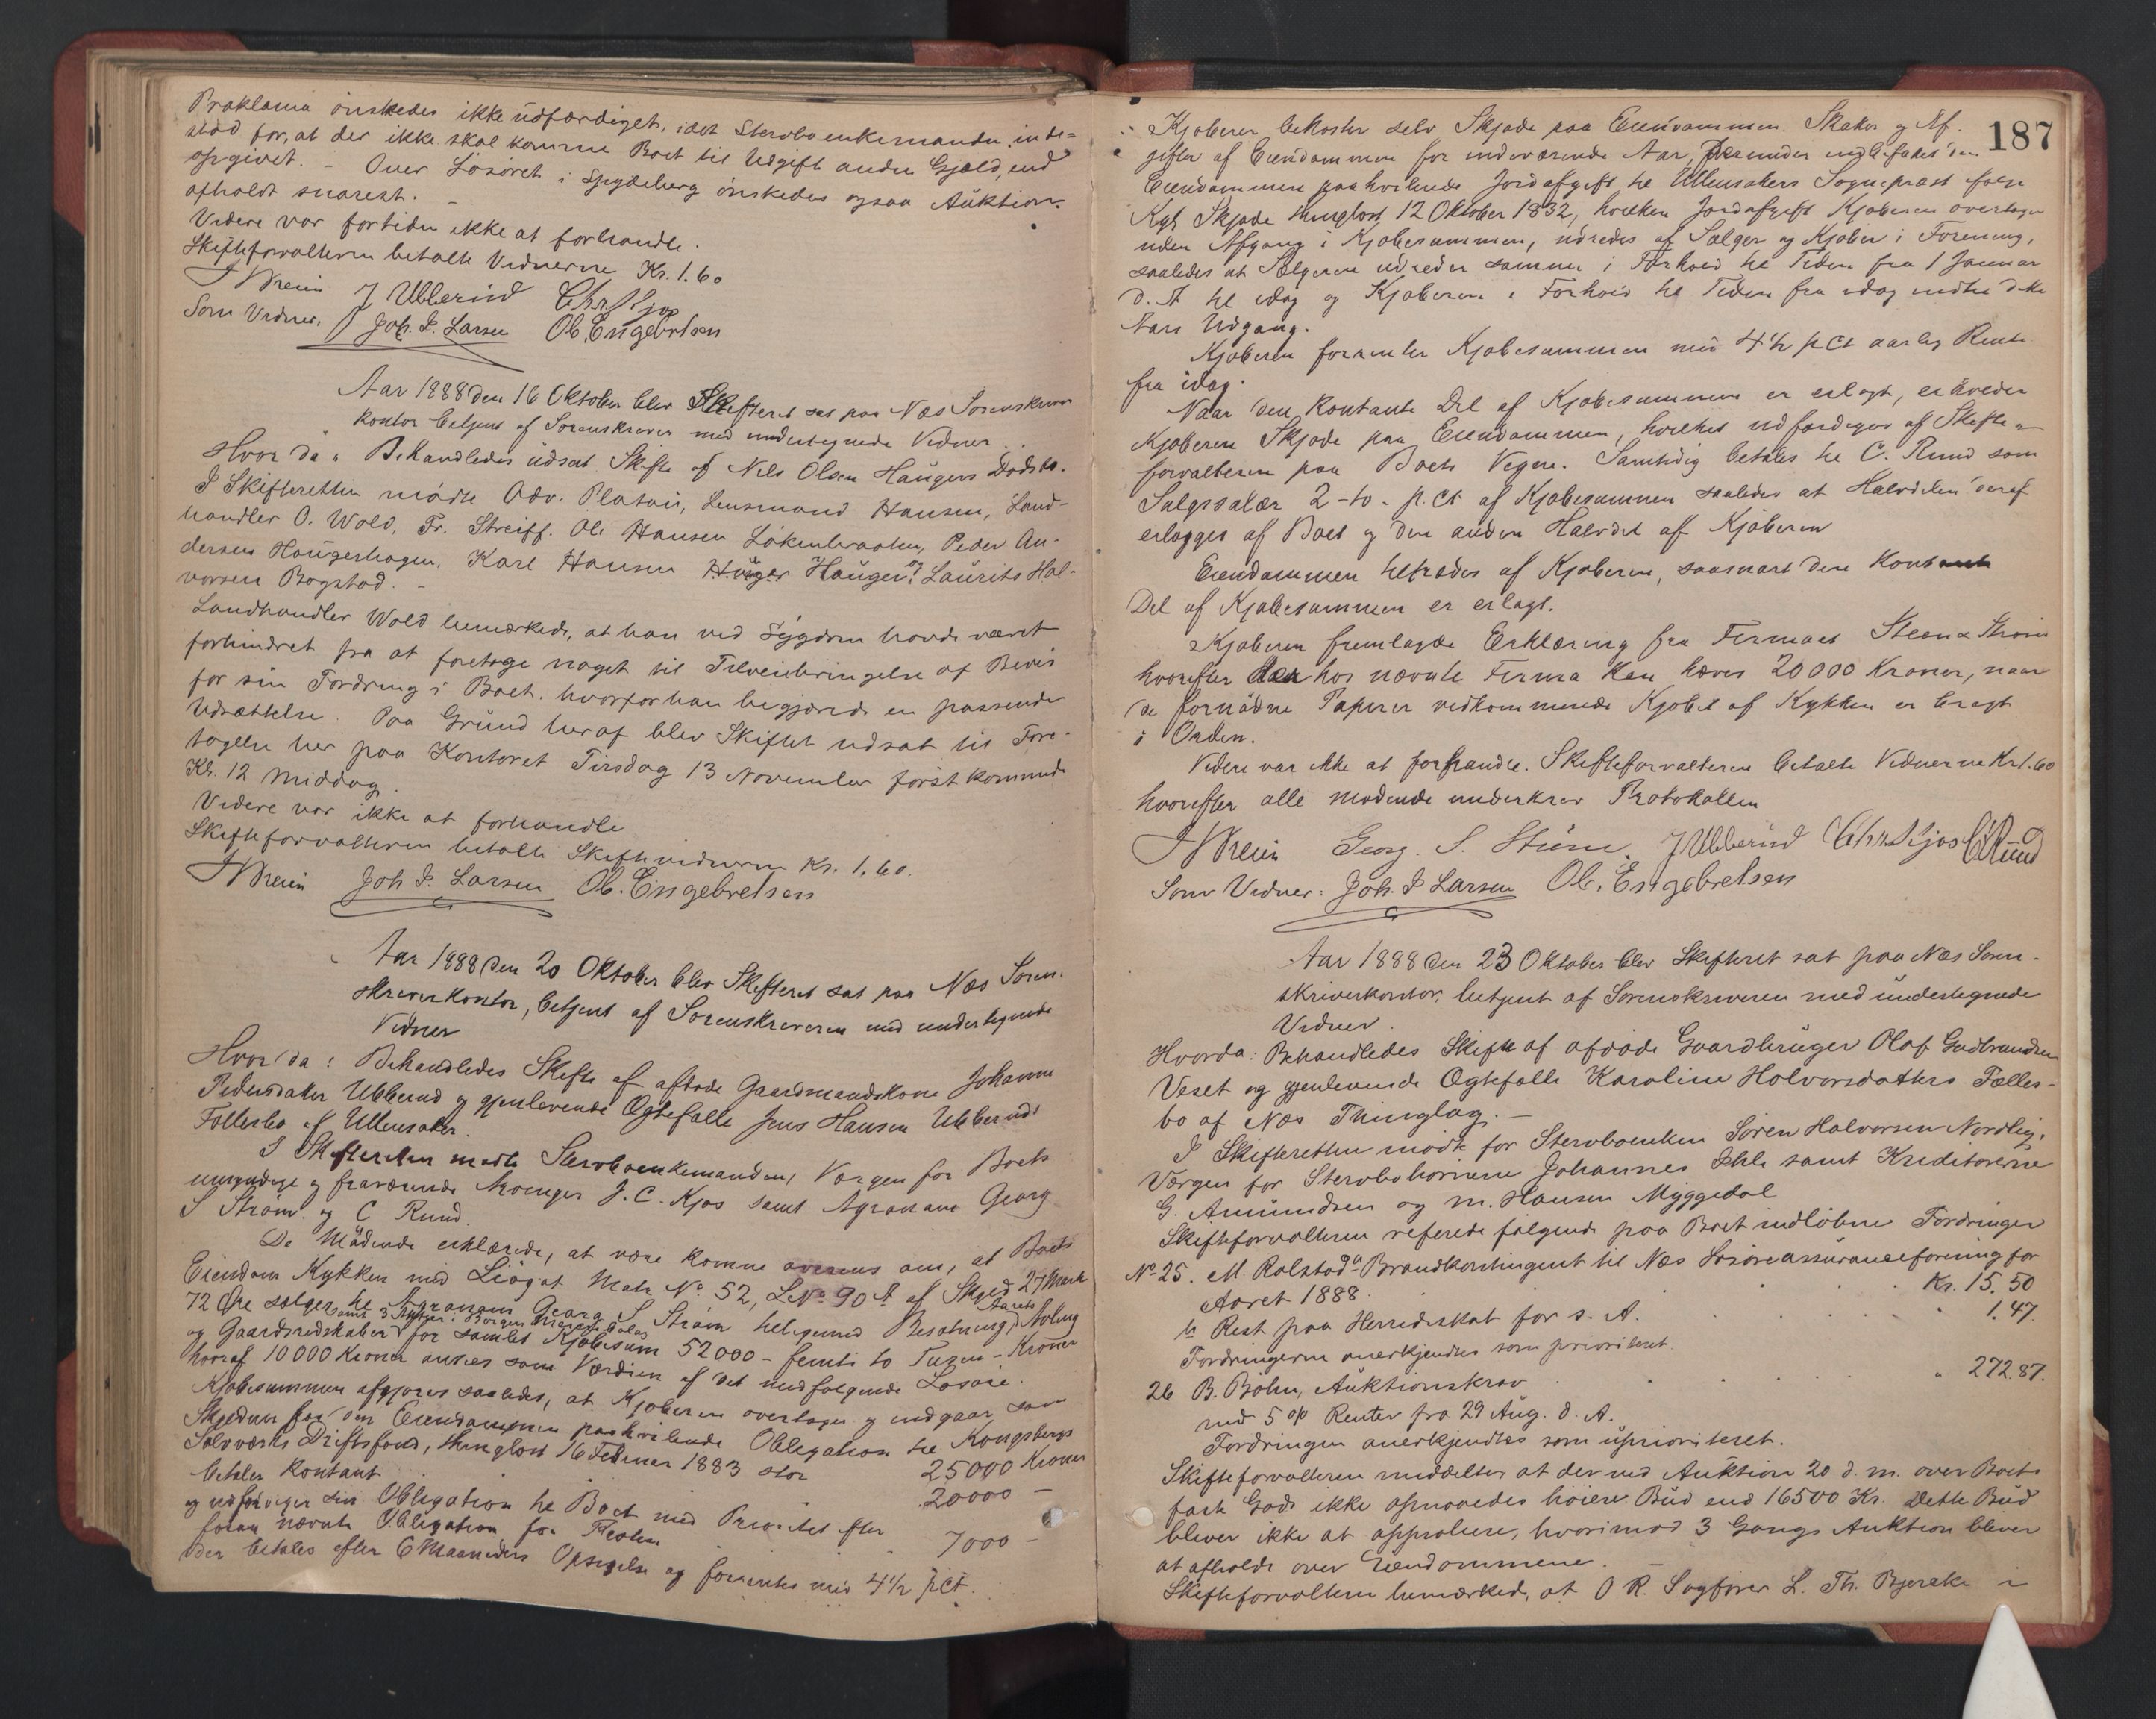 Proklama önskedes ikke udfærdiget, idet Stervboenkemanden inde-
stod for, at der ikke skal komme Boet til Udgift anden Gjæld, end
opgivet. - Over Lösöret i Spydeberg önskedes ogsaa Auktion
afholdt snarest. -
Videre var fortiden ikke at forhandle.
Skifteforvalteren betalte Vidnerne Kr. 1.60
J Ubberud Chr Kjos
Som Vidner. Joh. P. Larsen Ol. Engebretsen
Aar 1888 den 16 Oktober blev Skifteret sat paa Næs Sorenskriver
kontor betjent af Sorenskriveren med undertegnede Vidner.
Hvor da: Behandledes udsat Skifte af Nils Olsen Haugers Dödsbo.
I Skifteretten mödte Adv. Platou, Lensmand Hansen, Land-
handler O. Wold, Fr. Streiff. Ole Hansen Lökenbraaten, Peder An-
dersen Haugerhagen, Karl Hansen Hauger, Laurits Hal-
vorsen Bogstad. -
Landhandler Wold bemærkede, at han ved Sygdom havde været
forhindret fra at foretage noget til Tilveiebringelse af Bevis
for sin Fordring i Boet. hvorfor han begjærede en passende
Udsættelse. Paa Grund heraf blev Skiftet udsat til Fore-
tagelse her paa Kontoret Tirsdag 13 November först kommende
Kl. 12 Middag.
Videre var ikke at forhandle
Skifteforvalteren betalte Skiftevidnerne Kr. 1.60.
Joh P. Larsen Ol. Engebretsen
Aar 1888 den 20 Oktober blev Skifteret sat paa Næs Soren-
skriverkontor, betjent af Sorenskriveren med undertegnede
Vidner
Hvor da: Behandledes Skifte af afdøde Gaardmandskone Johanne
Pedersdatter Ubberud og gjenlevende Ægtefælle Jens Hansen Ubberuds
Fællesbo af Ullensaker.
I Skifteretten mødte Stervboenkemanden, Værgen for Boets
umyndige og fraværende Arvinger J. C. Kjos samt Agronom Georg
S Strøm og C Rund.
De Mødende erklærede, at være komne overens om, at Boets
Eiendom Kykken med Liögot Matr No 52, L.No 90 a af Skyld 27 Mark
72 Øre sælges til Agronom Georg S Strøm tilligemed Besætning, Aarets Avling
og Gaardsredskaber samt 3 for samlet Kjøbesum 52000 - femti to Tusen - Kroner
hvoraf 10000 Kroner ansees som Værdien af det medfølgende Løsøre.
Kjøbesummen afgjøres saaledes, at Kjøberen overtager og indgaar som
Skyldner for den Eiendommen paahvilende Obligation til Kongsbergs
Sølvværks Driftsfond, thinglæst 16 Februar 1883 stor 25000 Kroner
betaler kontant 20000 -
og udfærdiger sin Obligation til Boet med Prioritet efter
foran nævnte Obligation for Resten 7000 -
der betales efter 6 Maaneders Opsigelse og forrentes med 4 1/2 pCt.
187
Kjøberen bekoster selv Skjøde paa Eiendommen. Skatter og Af-
gifter af Eiendommen for indeværende Aar, herunder indbefattet den
Eiendommen paahvilende Jordafgift til Ullensakers Sogneprest ifølge
Kgl. Skjøde thinglæst 12 Oktober 1832, hvilken Jordafgift Kjøberen overtager
uden Afgang i Kjøbesummen, udredes af Sælger og Kjøber i Forening,
saaledes at Sælgeren udreder samme i Forhold til Tiden fra 1 Januar
d. A til idag og Kjøberen i Forhold til Tiden fra idag indtil dette
Aars Udgang.
Kjøberen forrenter Kjøbesummen med 4 1/2 pCt aarlig Rente
fra idag.
Naar den kontante Del af Kjøbesummen er erlagt, erholder
Kjøberen Skjøde paa Eiendommen, hvilket udfærdiges af Skifte-
forvalteren paa Boets Vegne. Samtidig betales til C. Rund som
Salgssalær 2 - to - p. ct. af Kjøbesummen saaledes at Halvdelen deraf
erlægges af Boet og den anden Halvdel af Kjøberen
Eiendommen tiltrædes af Kjøberen, saasnart den kontante
Del af Kjøbesummen er erlagt.
Kjøberen fremlagde Erklæring fra Firmaet Steen & Strøm
hvorefter der hos nævnte Firma kan hæves 20000 Kroner, naar
de fornødne Papirer vedkommende Kjøbet af Kykken er bragt
i Orden.
Videre var ikke at forhandle. Skifteforvalteren betalte Vidnerne Kr 1.60
hvorefter alle mødende underskrev Protokollen
Georg. S. Strøm. J Ubberud Chr. Kjos C Rund
Som Vidner: Joh. P Larsen Ol. Engebretsen
Aar 1888 den 23 Oktober blev Skifteret sat paa Næs Soren-
skriverkontor, betjent af Sorenskriveren med undertegnede
Vidner.
Hvorda: Behandledes Skifte af afdöde Gaardbruger Olaf Gudbrandsen
Veset og gjenlevende Ægtefælle Karoline Halvorsdatters Fælles-
bo af Næs Thinglag. -
I Skifteretten mödte for Stervboenken Sören Halvorsen Nordlie,
Værgen for Stervbobörnene Johannes Ihle samt Kreditorerne
G. Amundsen og M. Hansen Myggedal
Skifteforvalteren referede fölgende paa Boet indlöbne Fordringer
No 25. M. Rolstad a Brandkontingent til Næs Lösöreassuranceforening for
Aaret 1888 Kr. 15.50
b Rest paa Herredsskat for s. A. 1.47.
Fordringerne anerkjendtes som prioriteret.
26 B. Böhn, Auktionskrav " 272.87.
med 5 o/o Renter fra 29 Aug. d. A.
Fordringen anerkjendtes som uprioriteret.
Skifteforvalteren meddelte, at der ved Auktion 20 d. m. over Boets
faste Gods ikke opnaaedes höiere Bud end 16500 Kr. Dette Bud
bliver ikke at approbere, hvorimod 3 Gangs Auktion bliver
at afholde over Eiendommene. -
Skifteforvalteren bemærkede, at O R. Sagförer L. Th. Bjercke i